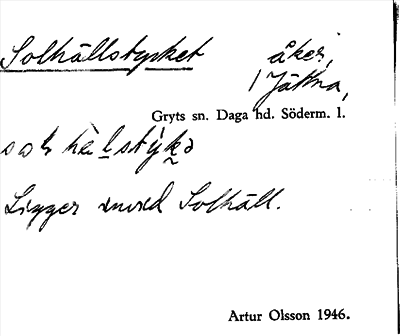 Solhällstycket åker,
/ Jättna,
Gryts sn. Daga hd. Söderm. l.
Ligger invid Solhäll.
Artur Olsson 1946.